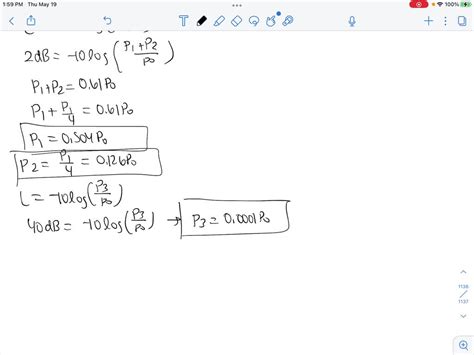 1:59 PM Thu May 19
100%
2dB = -10log(P1+P2/P0)
P1+P2 = 0.61P0
P1 + P1/4 = 0.61P0
P1 = 0.504P0
P2 = P1/4 = 0.126P0
L = -10log(P3/P0)
40dB = -10log(P3/P0) → P3 = 0.0001P0
1136
1137